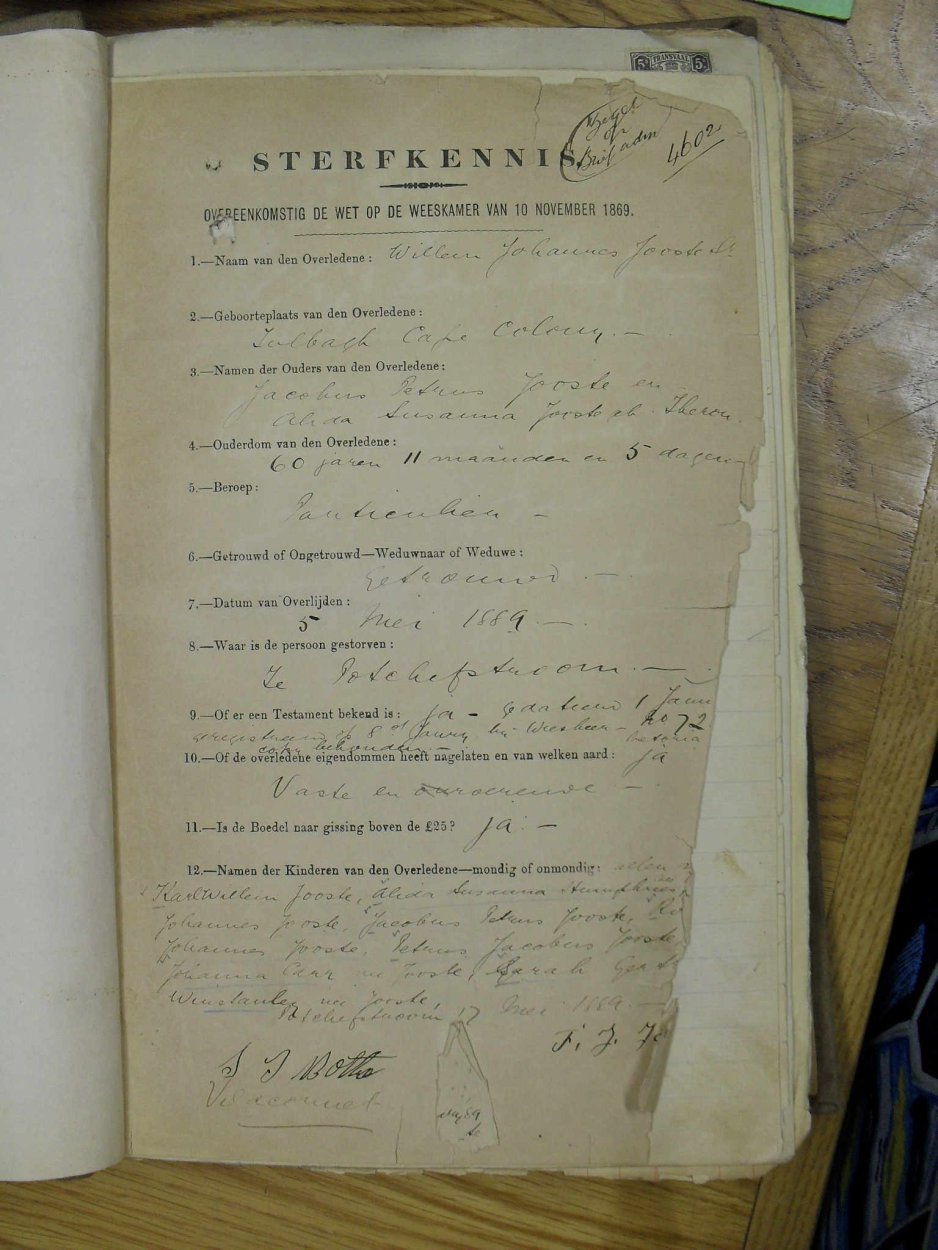 5 TRANSVAAL 5
Zegel
op
Brief adm
4602
STERFKENNIS
OVEREENKOMSTIG DE WET OP DE WEESKAMER VAN 10 NOVEMBER 1869.
1.—Naam van den Overledene: Willem Johannes Jooste Sr
2.—Geboorteplaats van den Overledene:
Tulbagh Cape Colony. —
3.—Namen der Ouders van den Overledene:
Jacobus Petrus Jooste en
Alida Susanna Jooste Theron.
4.—Ouderdom van den Overledene:
60 jaren 11 maanden en 5 dagen
5.—Beroep:
Particulier —
6.—Getrouwd of Ongetrouwd—Weduwnaar of Weduwe:
Getrouwd —
7.—Datum van Overlijden:
5 Mei 1889. —
8.—Waar is de persoon gestorven:
Te Potchefstroom. —
9.—Of er een Testament bekend is: ja — gedateerd 1 Janu
geregistreerd op 8 Janry by Weesheer — No 72
copy behouden. —
10.—Of de overledene eigendommen heeft nagelaten en van welken aard: ja
Vaste en onroerende —
11.—Is de Boedel naar gissing boven de £25? ja. —
12.—Namen der Kinderen van den Overledene—mondig of onmondig: allen
Karl Willem Jooste, Alida Susanna Humphries
Johannes Jooste, Jacobus Petrus Jooste,
Johannes Jooste, Petrus Jacobus Jooste
Johanna Carr nee Jooste, Sarah Gert
Winstanley nee Jooste,
Potchefstroom 17 Mei 1889 —
F. J. Jo
J J Botha
Veldcornet